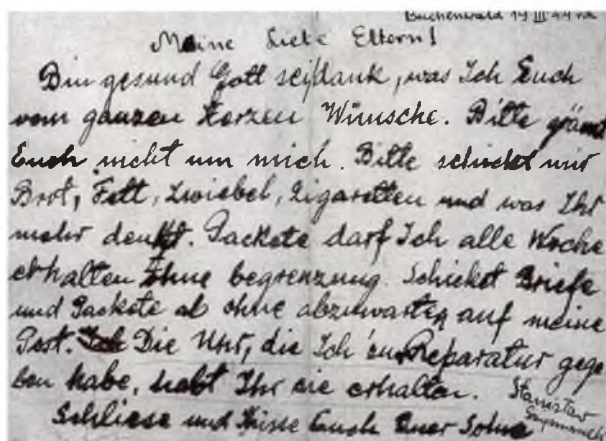 Buchenwald 19 III 44 r.
Meine Liebe Eltern!
Bin gesund Gott seidank, was Ich Euch
vom ganzen Herzen Wünsche. Bitte grämt
Euch nicht um mich. Bitte schicket mir
Brot, Fett, Zwiebel, Zigaretten und was Ihr
mehr denkt. Packete darf Ich alle Woche
erhalten Ohne begrenzung. Schicket Briefe
und Packete ab ohne abzuwarten auf meine
Post. Ich Die Uhr, die Ich zur Reparatur gege
ben habe, habt Ihr sie erhalten.
Schliese und Küsse Euch Euer Sohne
Stanisław